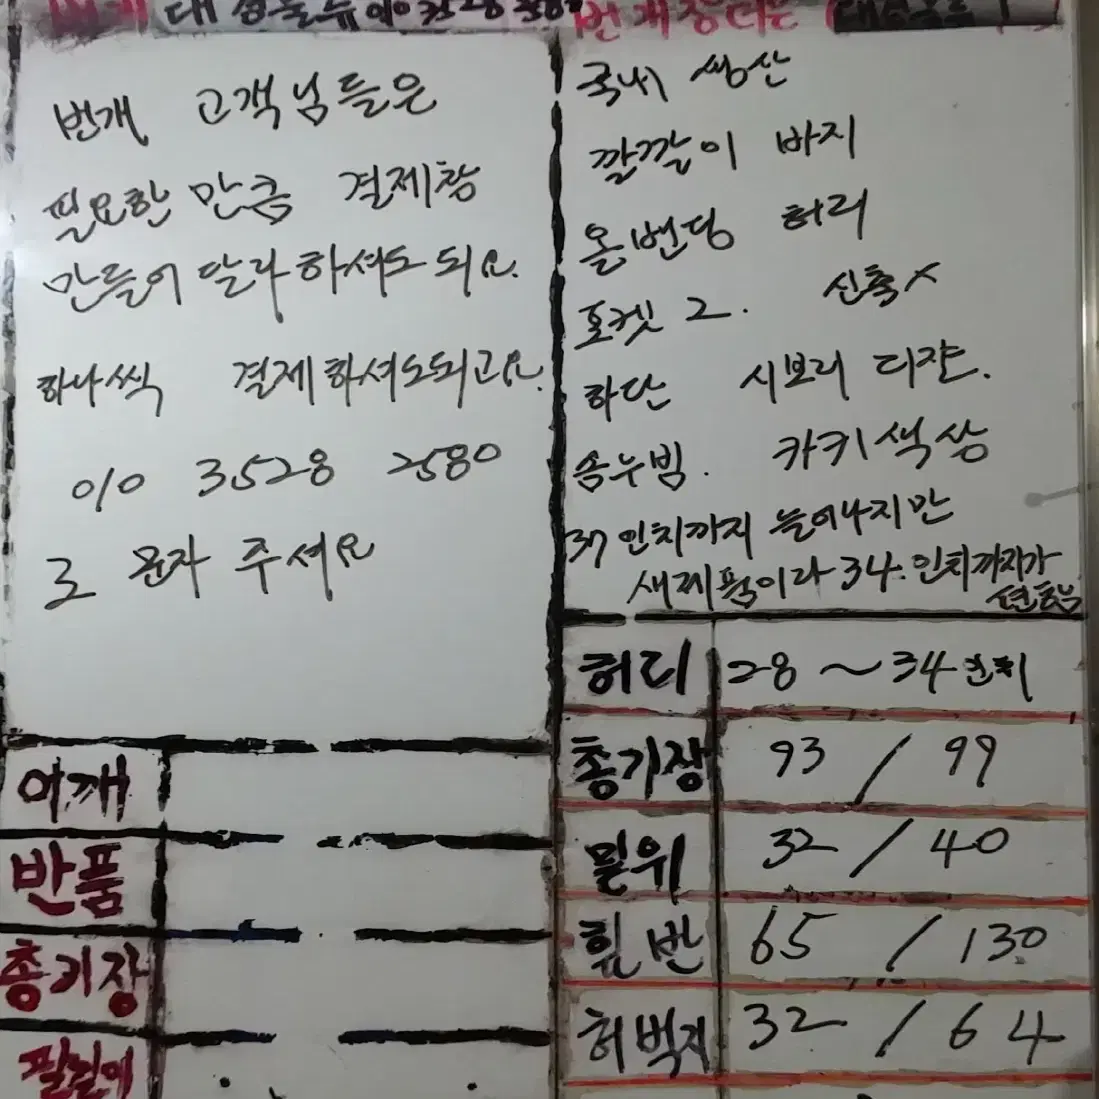 번개 고객님들은
필요한 만큼 결제창
만들어 달라 하셔도 되요.
하나씩 결제하셔도되고요.
010 3528 2580
로 문자 주세요
어깨
반품
총기장
국내 생산
깔깔이 바지
올밴딩 허리
포켓 2. 신축X
하단 시보리 디쟌.
솜누빔. 카키색상
37인치까지 늘어나지만
새제품이라 34.인치까지가
허리 28～34인치
총기장 93 / 99
밑위 32 / 40
힙반 65 / 130
허벅지 32 / 64